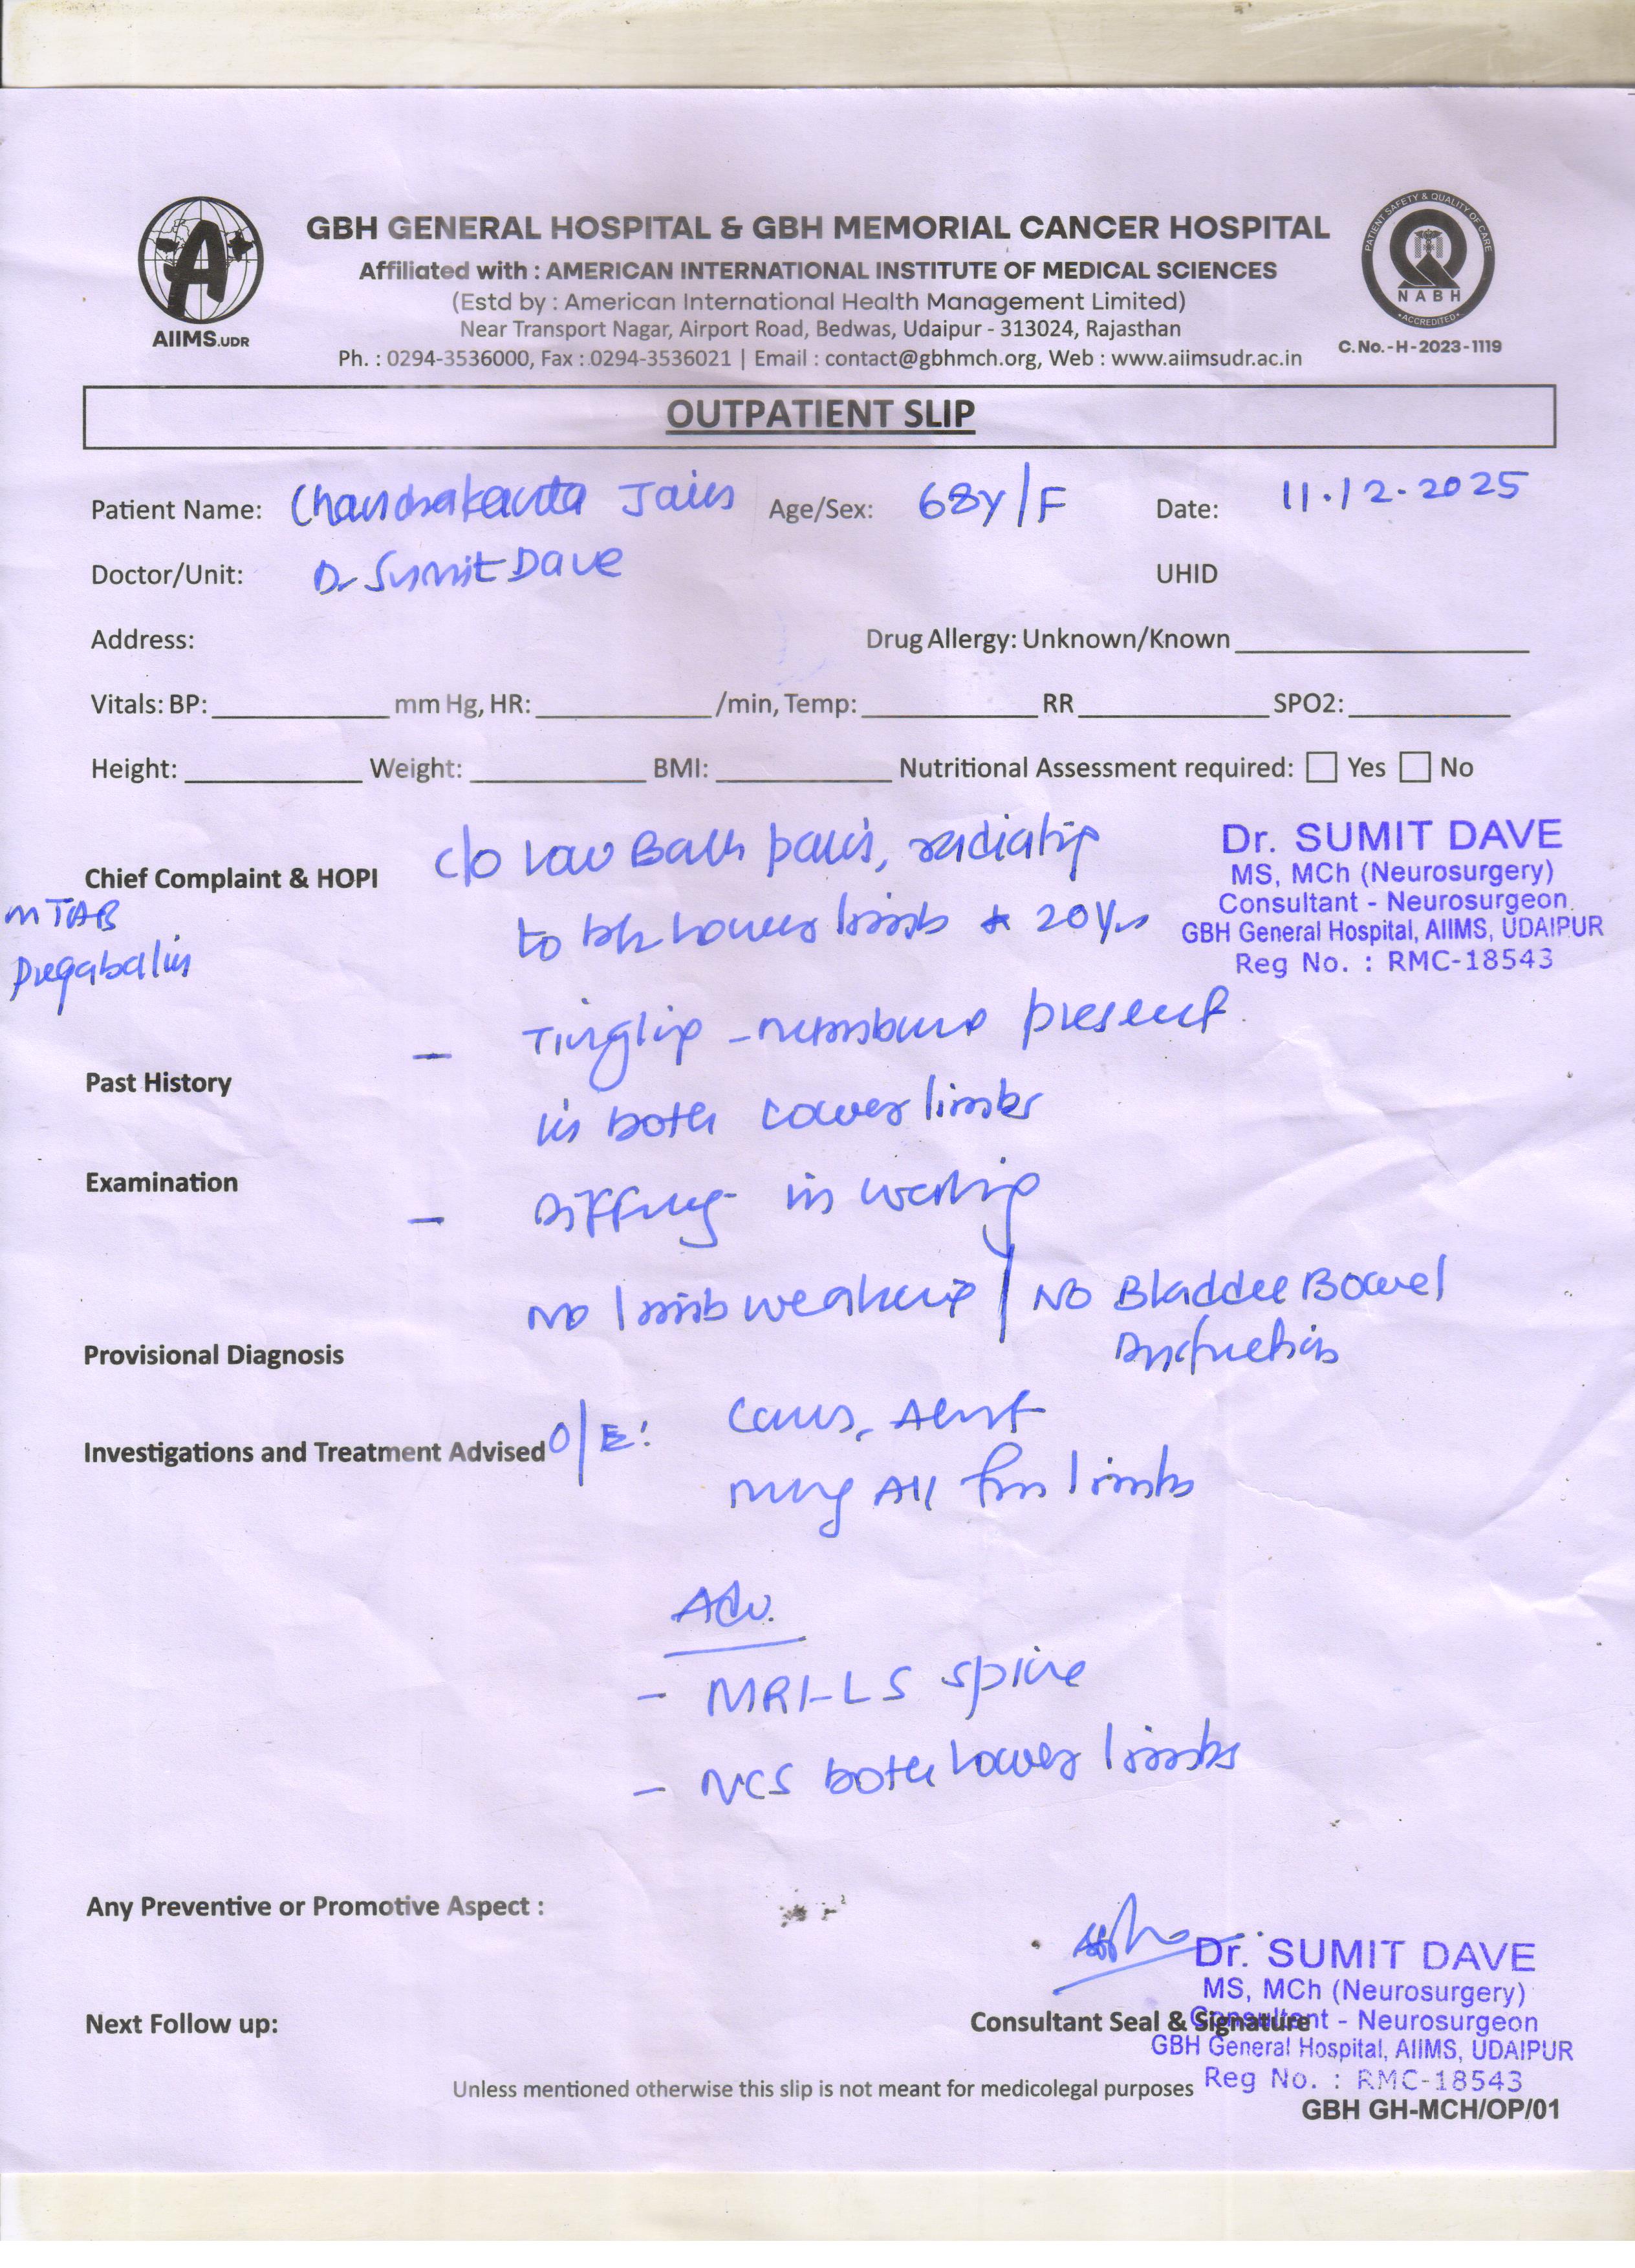 PATIENT SAFETY & QUALITY OF CARE
NABH
ACCREDITED
AIIMS.UDR
GBH GENERAL HOSPITAL & GBH MEMORIAL CANCER HOSPITAL
Affiliated with : AMERICAN INTERNATIONAL INSTITUTE OF MEDICAL SCIENCES
(Estd by : American International Health Management Limited)
Near Transport Nagar, Airport Road, Bedwas, Udaipur - 313024, Rajasthan
Ph. : 0294-3536000, Fax : 0294-3536021 | Email : contact@gbhmch.org, Web : www.aiimsudr.ac.in
C.No.-H-2023-1119
OUTPATIENT SLIP
Patient Name: Chandrakanta Jain Age/Sex: 68y/F Date: 11.12.2025
Doctor/Unit: Dr Sumit Dave UHID
Address: Drug Allergy: Unknown/Known
Vitals: BP: mm Hg, HR: /min, Temp: RR SPO2:
Height: Weight: BMI: Nutritional Assessment required: Yes No
Dr. SUMIT DAVE
MS, MCh (Neurosurgery)
Consultant - Neurosurgeon
GBH General Hospital, AIIMS, UDAIPUR
Reg No. : RMC-18543
Chief Complaint & HOPI c/o Low Back pain, radiating
to b/l Lower limb 20 Yrs
TAB
Pregabalin
- Tingling - numbness present
Past History
in both lower limbs
Examination
- Difficulty in walking
No limb weakness / No Bladder Bowel
Dysfunction
Provisional Diagnosis
Investigations and Treatment Advised O/E: Cons, Alert
moving All four limbs
Adv.
- MRI-LS spine
- NCS both lower limbs
Any Preventive or Promotive Aspect :
Dr. SUMIT DAVE
MS, MCh (Neurosurgery)
Next Follow up: Consultant Seal & Signature
Consultant - Neurosurgeon
GBH General Hospital, AIIMS, UDAIPUR
Unless mentioned otherwise this slip is not meant for medicolegal purposes
Reg No. : RMC-18543
GBH GH-MCH/OP/01